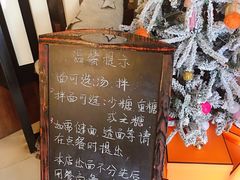 温馨提示
面可选:汤 拌
拌面可选:沙糖 蜜糖
或无糖
如需健面 选面等请
在点餐时提出!
本店出面不分先后